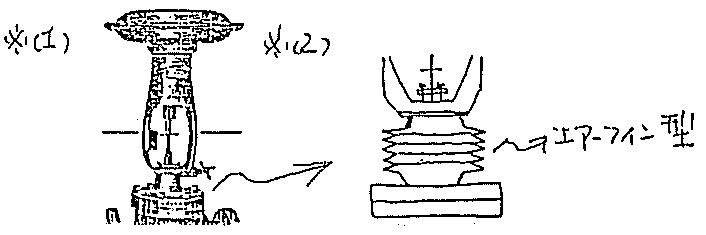 ※(1)
※(2)
エアーフイン型